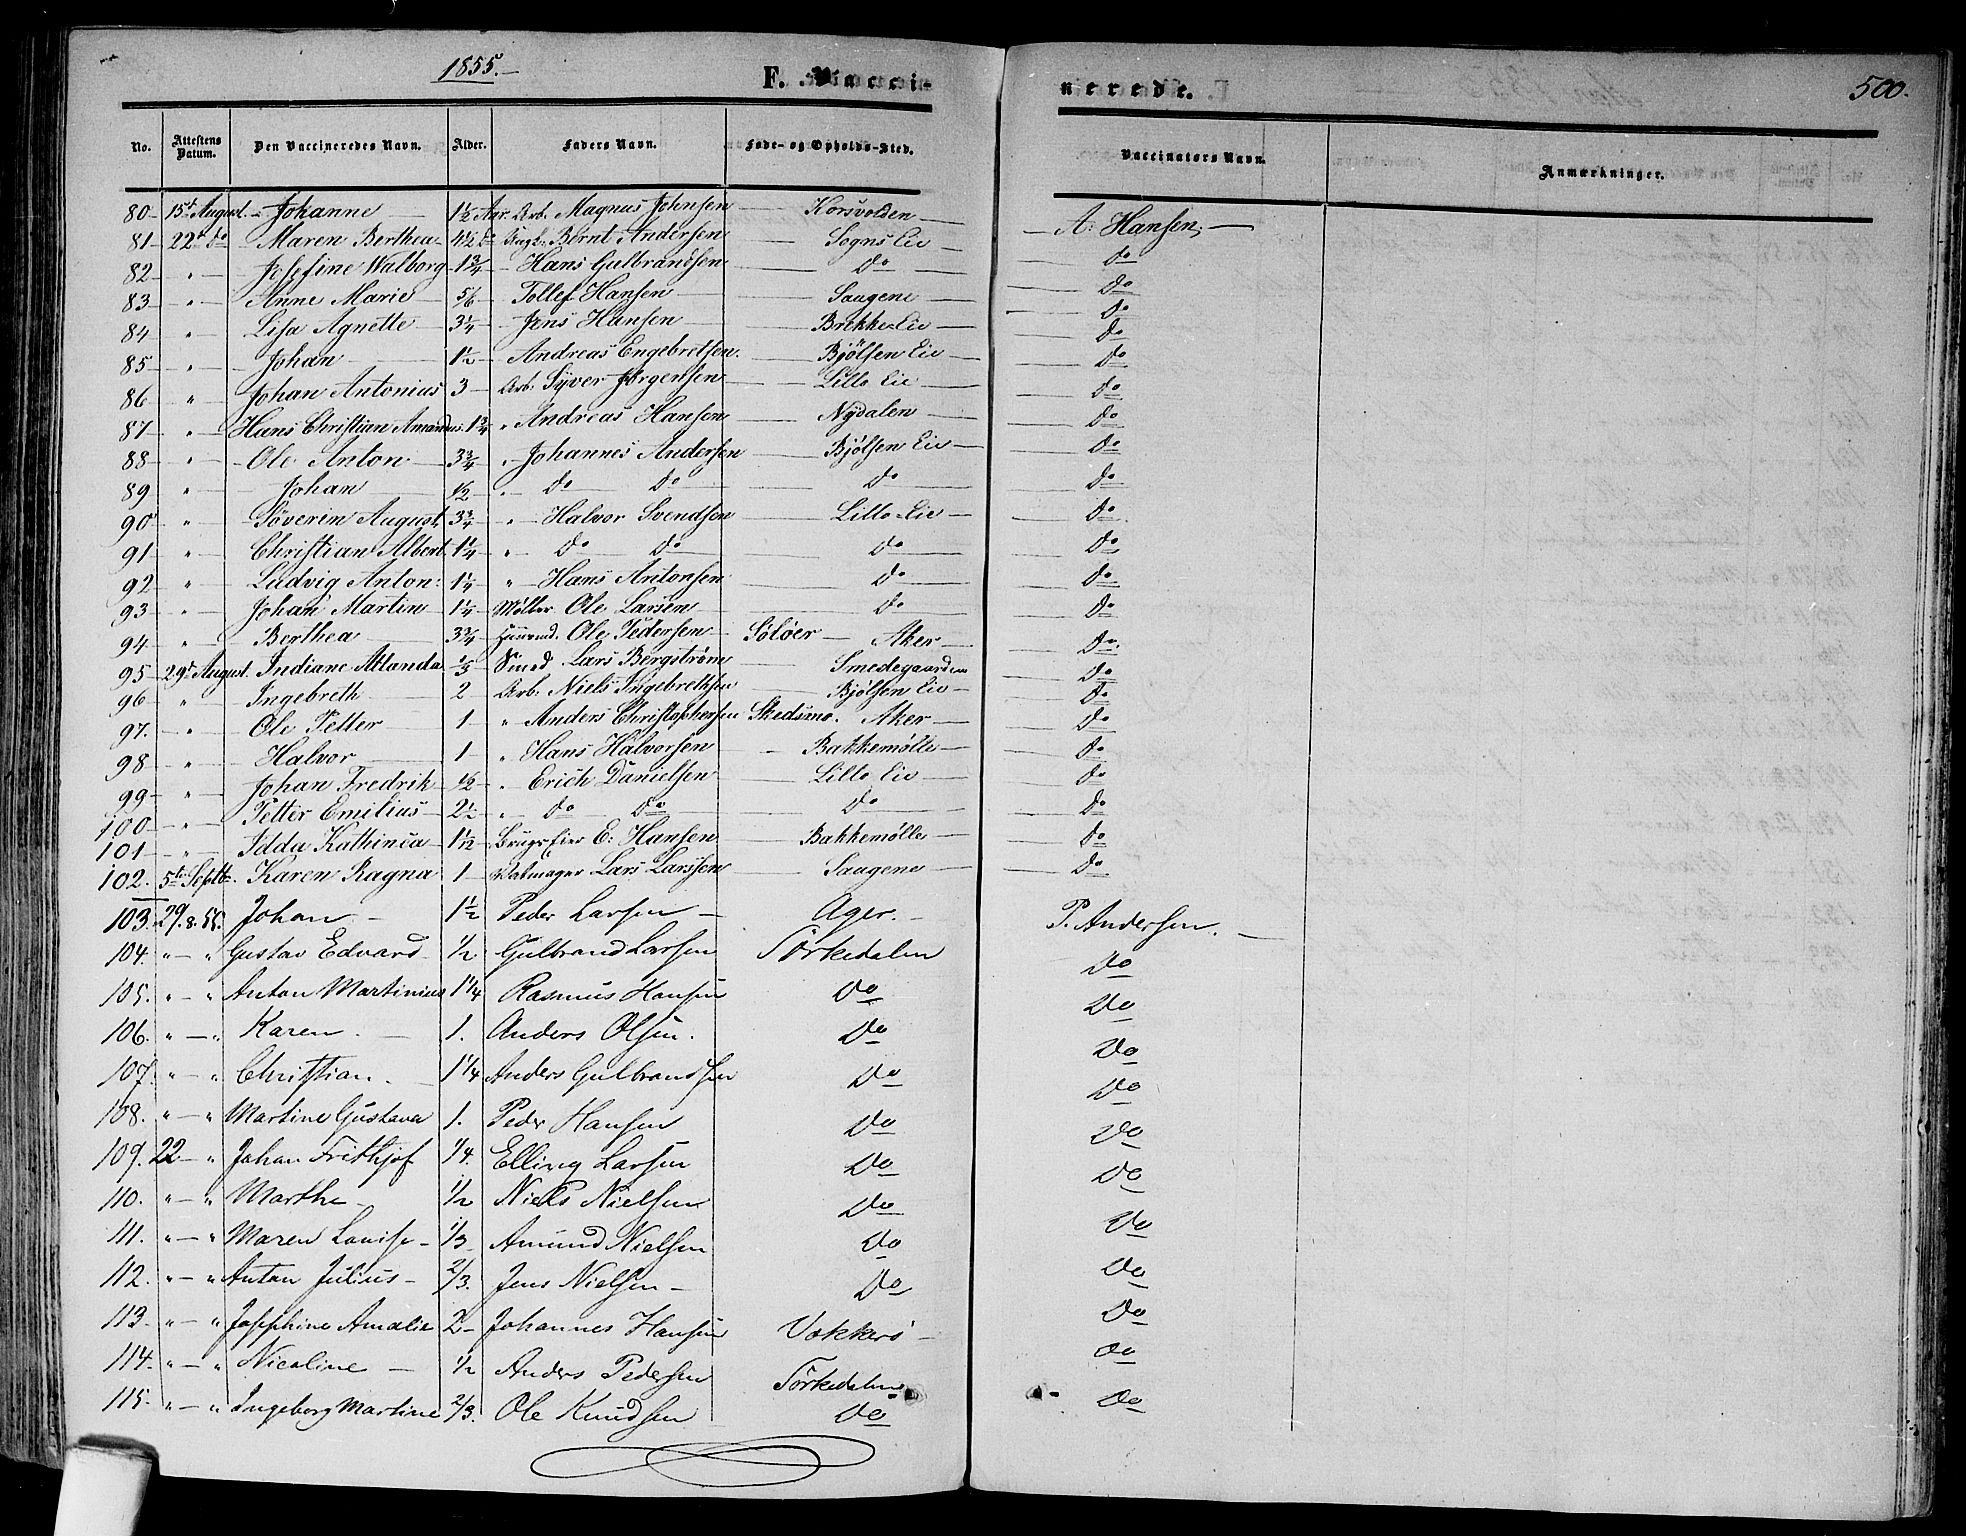 1855.–
F. Vacci-
nerede.
500.
No. Attestens Datum. Den Vaccineredes Navn. Alder. Faders Navn. Føde- og Opholds-Sted. Vaccinatørs Navn. Anmærkninger.
80 – 15de August. – Johanne – 1½ Aar. Arb. Magnus Johnsen – Korsvolden – A. Hansen. –
81 – 22de do – Maren Berthea – 4½ do Bernt Andersen – Sogns Eie – do
82 – " – Josefine Walborg – 1¾ – Hans Gulbrandsen – do – do
83 – " – Anne Marie – 5/6 – Tollef Hansen – Saugene – do
84 – " – Lisa Agnette – 3¼ – Jens Hansen – Brekke Eie – do
85 – " – Johan – 1½ – Andreas Engebretsen. – Bjölsen Eie – do
86 – " – Johan Antonius – 3 – Arb. Syver Jørgensen – Lillo Eie – do
87 – " – Hans Christian Amandus. 1¾ " Andreas Hansen – Nydalen – do
88 – " – Ole Anton – 3¾ – " Johannes Andersen – Bjølsen Eie – do
89 – " – Johan – ½ – " do do – do – do
90 – " – Söverin August – 3¾ – " – Halvor Svendsen – Lillo-Eie – do
91 – " – Christian Albert – 1¼ – " – do do – do – do
92 – " – Ludvig Anton: – 1¼ – " – Hans Antonsen – do – do
93 – " – Johan Martin – 1¼ – Møller Ole Larsen – do – do
94 – " – Berthea – 3¾ – Huusmd. Ole Pedersen – Soløer – Aker – do
95 – 29de August. Indiane Atlanda. – 1/3 – Smed Lars Bergstrøm – Smedegaarden – do
96 – " – Ingebreth – 2 – Arb. Niels Ingebrethsen – Bjølsen Eie – do
97. – " – Ole Petter – 1 – " Anders Christophersen – Skedsmo. Aker – do
98 – " – Halvor – 1 – " Hans Halvorsen – Bakkemølle – do
99 – " – Johan Fredrik – ½ – " Erich Danielsen – Lillo Eie – do
100 – " – Petter Emilius – 2½ – " do do – do – do
101 – " – Idda Kathinca – 1 1/12 – Brugseier E. Hansen – Bakkemølle – do
102. – 5te Septb – Karen Ragna – 1 – Lars Larssen – Saugene – do
103. 29.8.55. Johan. – 1½ Peder Larsen – Ager. – P. Andersen. –
104. " – " Gustav Edvard ½ Gulbrand Larsen Sörkedalen Do
105. " – " Anton Martinius 1¼ Rasmus Hansen Do Do
106. " – " Karen. – 1. Anders Olsen. Do Do
107. " – " Christian. – 1¼ Anders Gulbrandsen Do Do
108. " – " Martine Gustava 1. Peder Hansen Do Do
109. 22 – " Johan Frithjof ¼. Elling Larsen Do Do
110. " – " Marthe – ½ Niels Nielsen Do Do
111. " – " Maren Louise – 1/3 Amund Nielsen Do Do
112. " – " Anton Julius – 2/3. Jens Nielsen – Do Do
113. " – " Josephine Amalie 2 – Johannes Hansen Vækkerö – Do
114. " – " Nicoline – ½ Anders Pedersen Sörkedalen Do
115. " – " Ingeborg Martine 2/3. Ole Knudsen Do Do